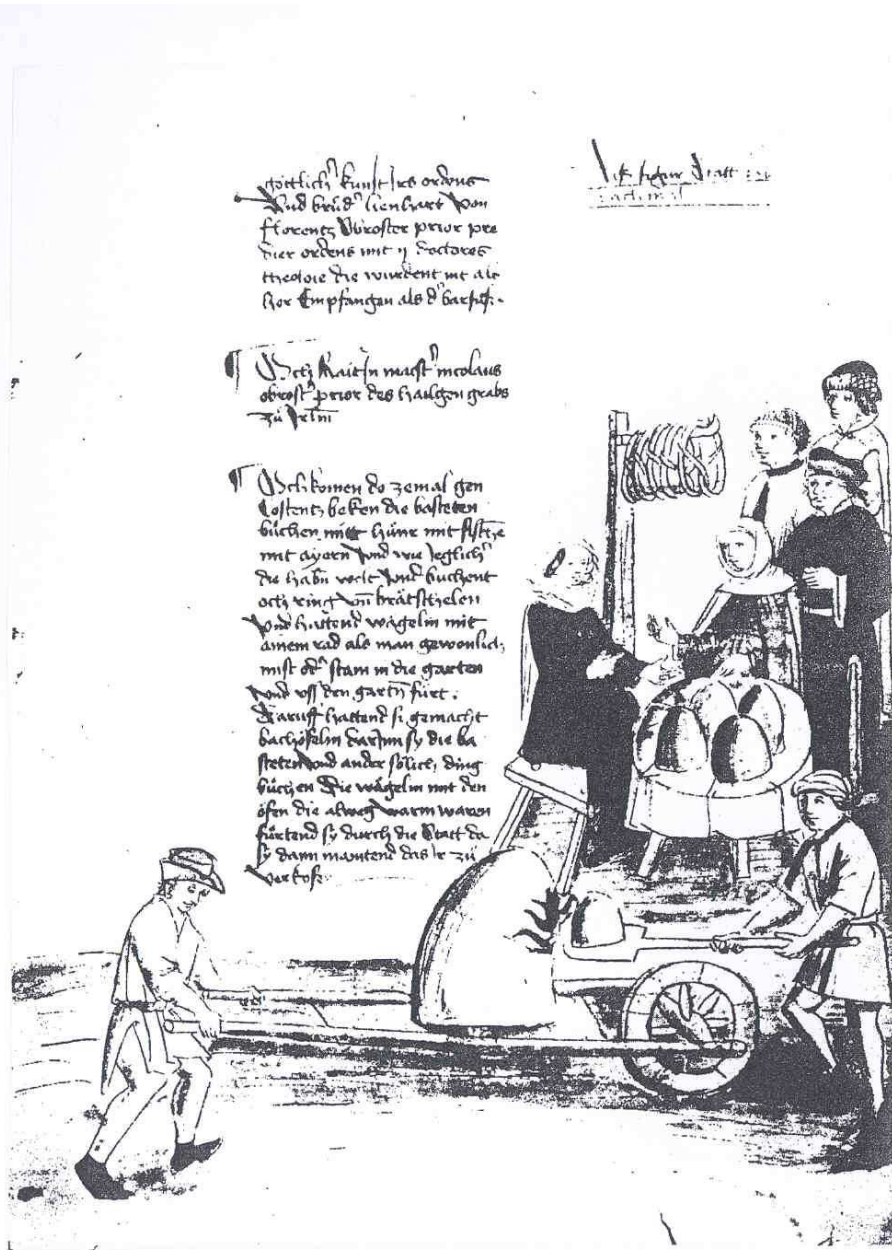 götlich' kunst Irs ordens
Und brůd' lienhart von
florentz Obroster prior pre
dier ordens mit ij doctores
theoloie die wurdent mt als
her Empfangen als d' barfůs.
Och Rait In maist' nicolaus
obrost' prior des hailgen grabs
zů Jrlm
Och komen do zemal gen
Costentz beken die basteten
bůchen mitt hůnr mit fisthe
mit ayern vnd wie Jeglich'
die habn wolt vnd buchent
och ring vnd brätsthelen
vnd hattend wägelin mit
ainem rad als man gewonlich
mist od' stain in die garten
vnd uss den gartn fůrt.
Daruff hattend si gemacht
bachöfelin darJnn sy die ba
steten vnd ander sölich ding
bůchen Die wägelin mit den
öfen die alweg warm waren
fůrtend sy durch die Statt da
sy dann maintend das Jr zů
verkofe
figur statt